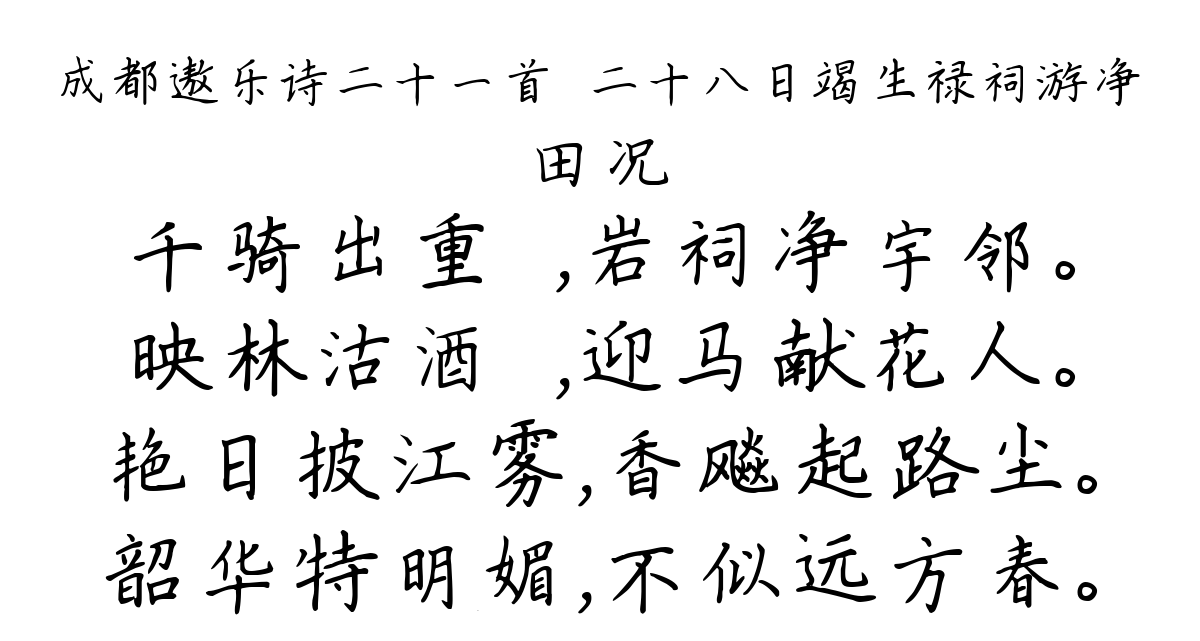 成都遨乐诗二十一首 二十八日竭生禄祠游净
田况
千骑出重 ,岩祠净宇邻。
映林沽酒 ,迎马献花人。
艳日披江雾,香飚起路尘。
韶华特明媚,不似远方春。